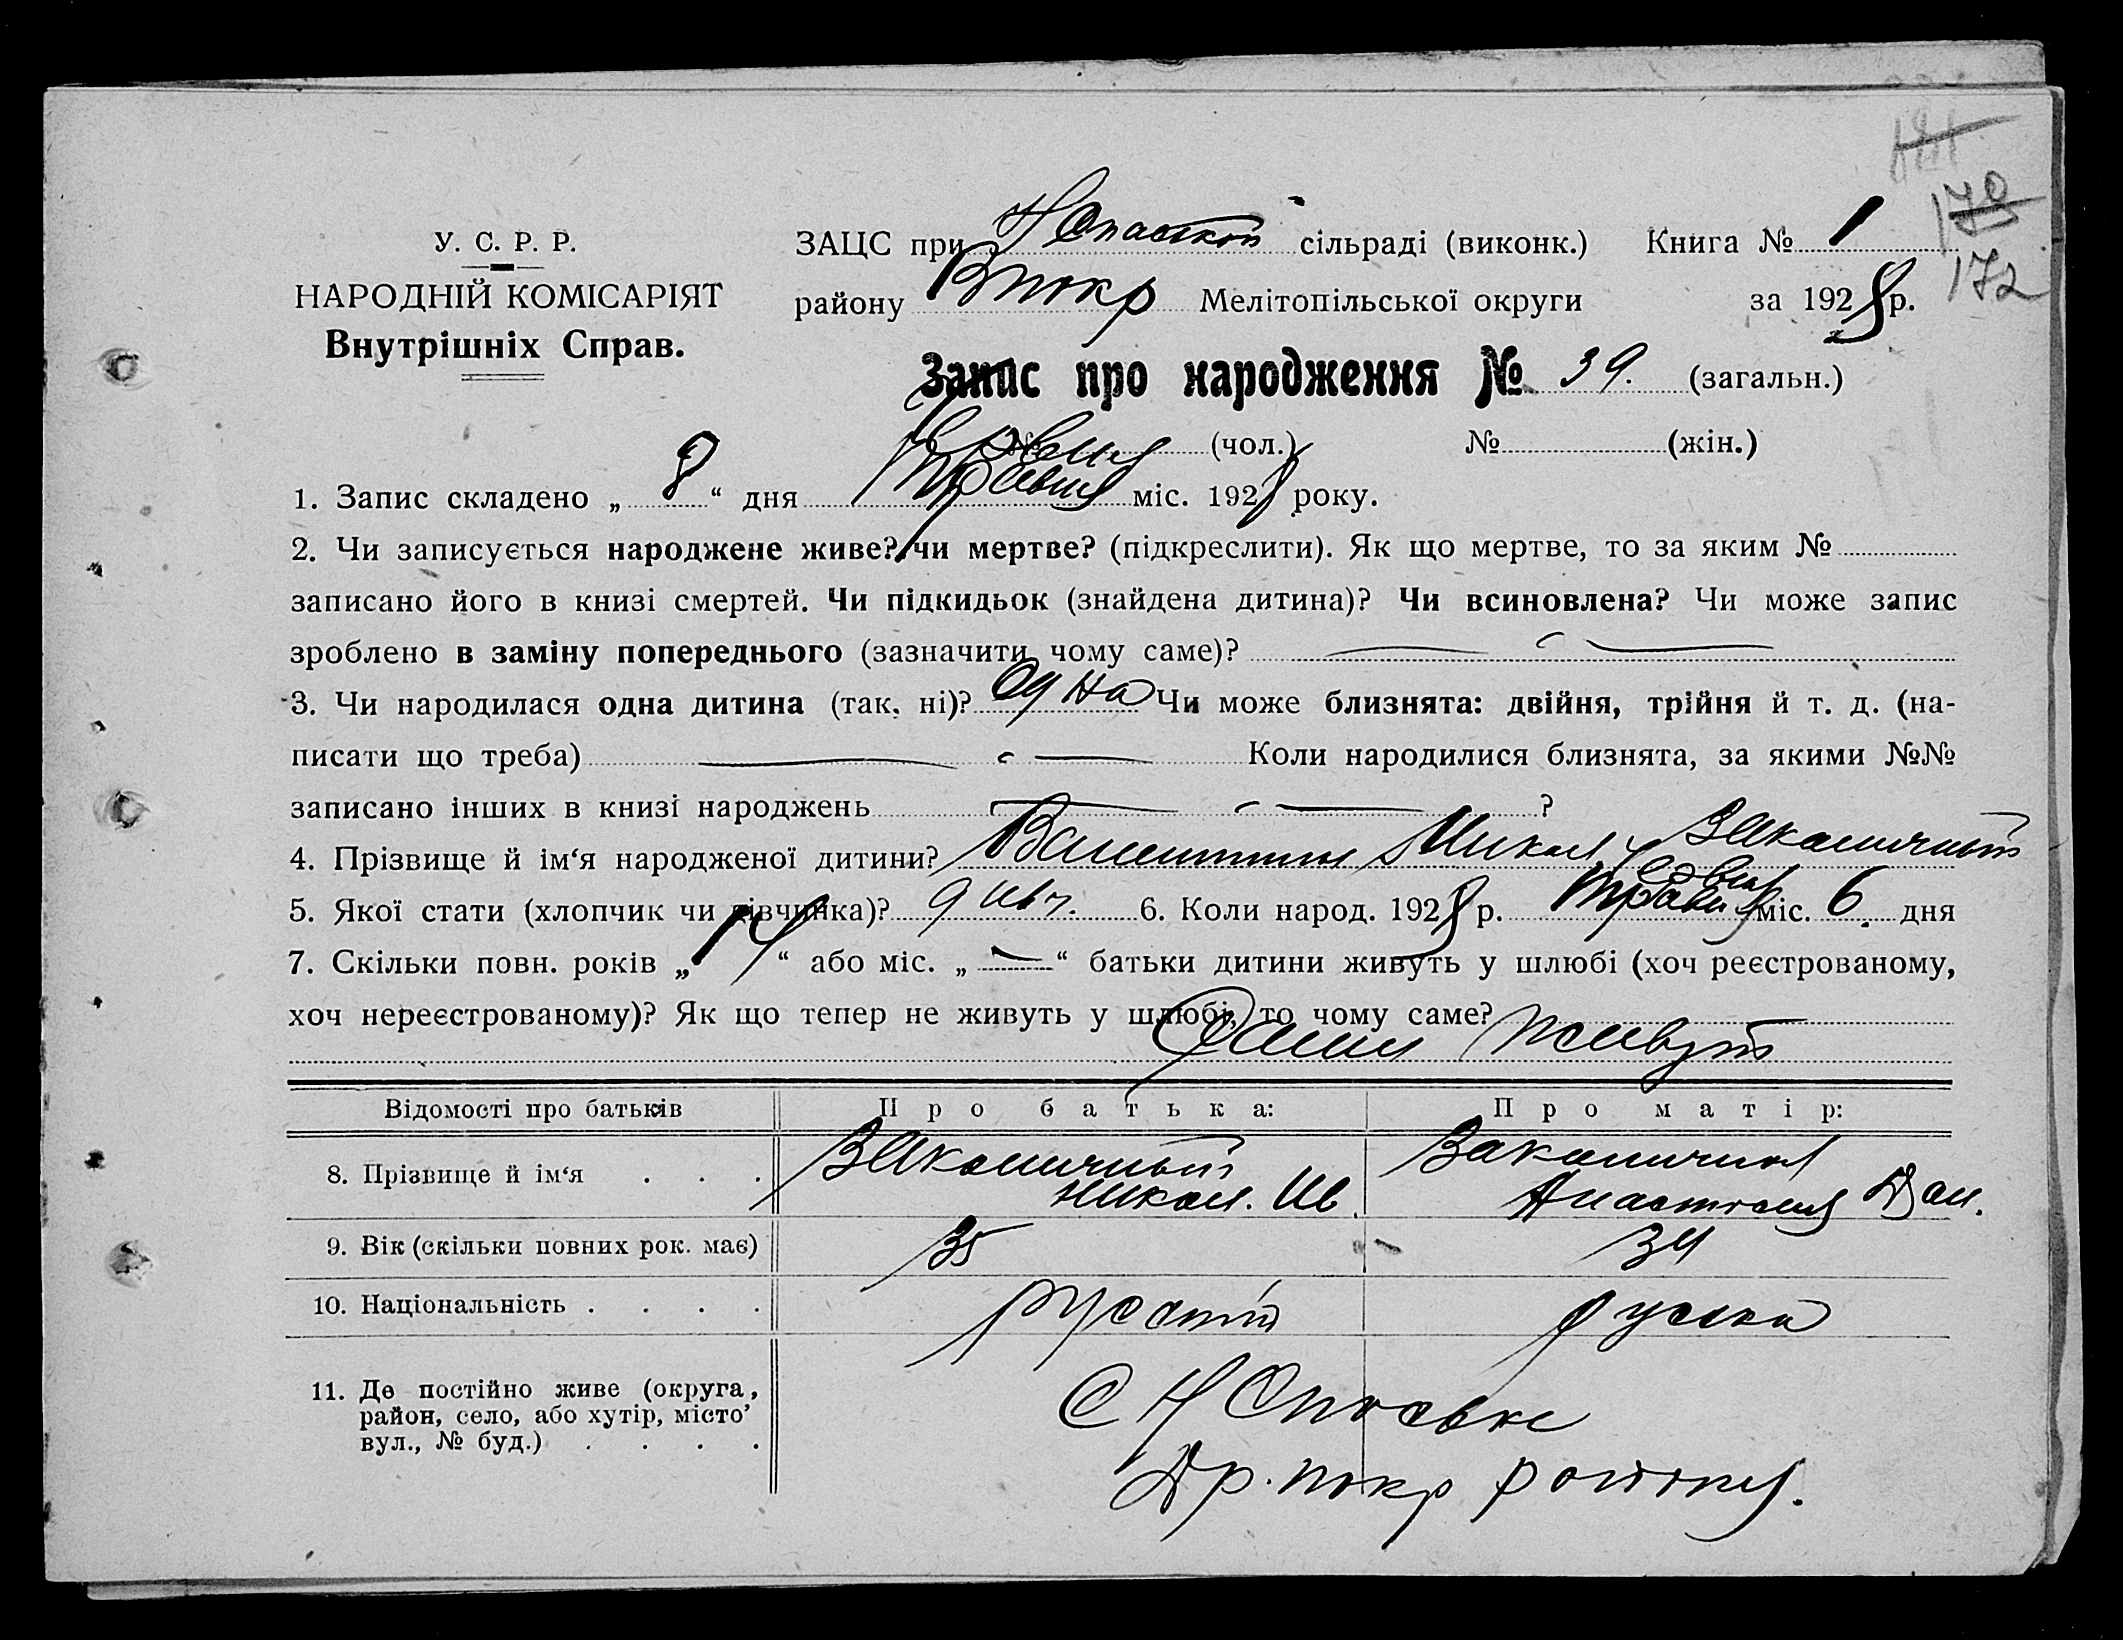 У. С. Р. Р.
НАРОДНІЙ КОМІСАРІЯТ
Внутрішніх Справ.
ЗАЦС при сільраді (виконк.) Книга № 1
170
172
району Мелітопільської округи за 1928 р.
Запис про народження № 39. (загальн.)
№ (чол.) № (жін.)
1. Запис складено „ 8 “ дня міс. 1928 року.
2. Чи записується народжене живе? чи мертве? (підкреслити). Як що мертве, то за яким №
записано його в книзі смертей. Чи підкидьок (знайдена дитина)? Чи всиновлена? Чи може запис
зроблено в заміну попереднього (зазначити чому саме)?
3. Чи народилася одна дитина (так, ні)? одна Чи може близнята: двійня, трійня й т. д. (на-
писати що треба) Коли народилися близнята, за якими №№
записано інших в книзі народжень ?
4. Прізвище й ім‘я народженої дитини? Валентина Никол.
5. Якої стати (хлопчик чи дівчинка)? дивч. 6. Коли народ. 1928 р. міс. 6 дня
7. Скільки повн. років „ 14 “ або міс. „ — “ батьки дитини живуть у шлюбі (хоч реєстрованому,
хоч нереєстрованому)? Як що тепер не живуть у шлюбі, то чому саме?
живут
Відомості про батьків Про батька: Про матір:
8. Прізвище й ім‘я . . . Никол. Ив. Анастасия Дан.
9. Вік (скільки повних рок. має) 35 34
10. Національність . . . . русский руска
11. Де постійно живе (округа,
район, село, або хутір, місто’
вул., № буд.) . . . .
С
район.